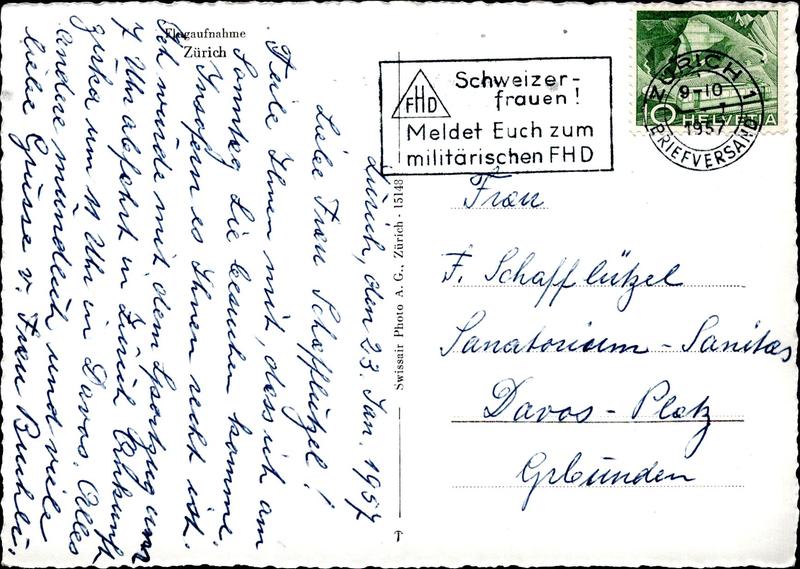 Flugaufnahme
Zürich
Zürich, den 23. Jan. 1957
Liebe Frau Schafflützel!
Teile Ihnen mit, dass ich am
Sonntag Sie besuchen komme.
Insofern es Ihnen recht ist.
Ich würde mit dem Sportzug um
7 Uhr abfahrt in Zürich Ankunft
zirka um 11 Uhr in Davos. Alles
andere mündlich und viele
liebe Grüsse v. Frau Buchli.
Swissair Photo A. G., Zürich - 15148
FHD
Schweizer-
frauen!
Meldet Euch zum
militärischen FHD
ZÜRICH 1
9-10
1957
BRIEFVERSAND
10 HELVETIA
Frau
F. Schafflützel
Sanatorium - Sanitas
Davos - Platz
Grbünden